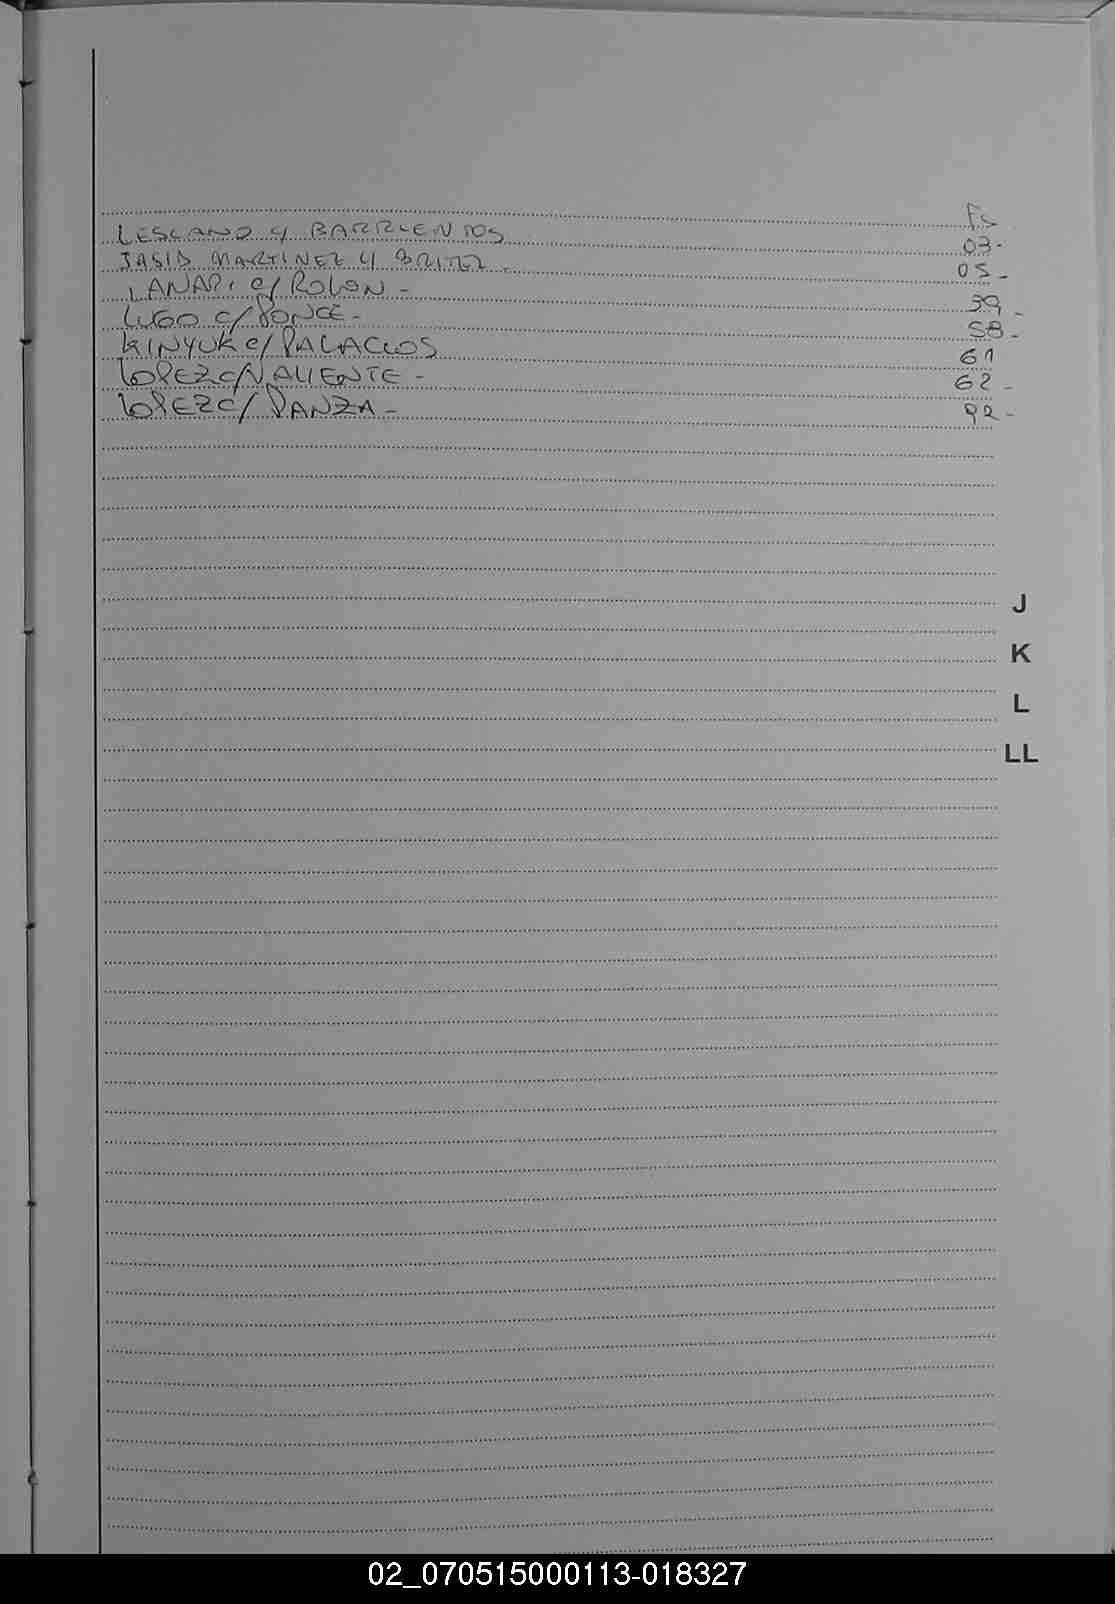 Fs
LESCANO Y BARRIENTOS 03-
JASID MARTINEZ Y BRITEZ. 05-
LANARI c/ ROLON - 39-
LUGO c/ PONCE - 58-
KINYUK c/ PALACIOS 61
LOPEZ c/ VALIENTE - 62-
LOPEZ c/ PANZA - 92-
J
K
L
LL
02_070515000113-018327